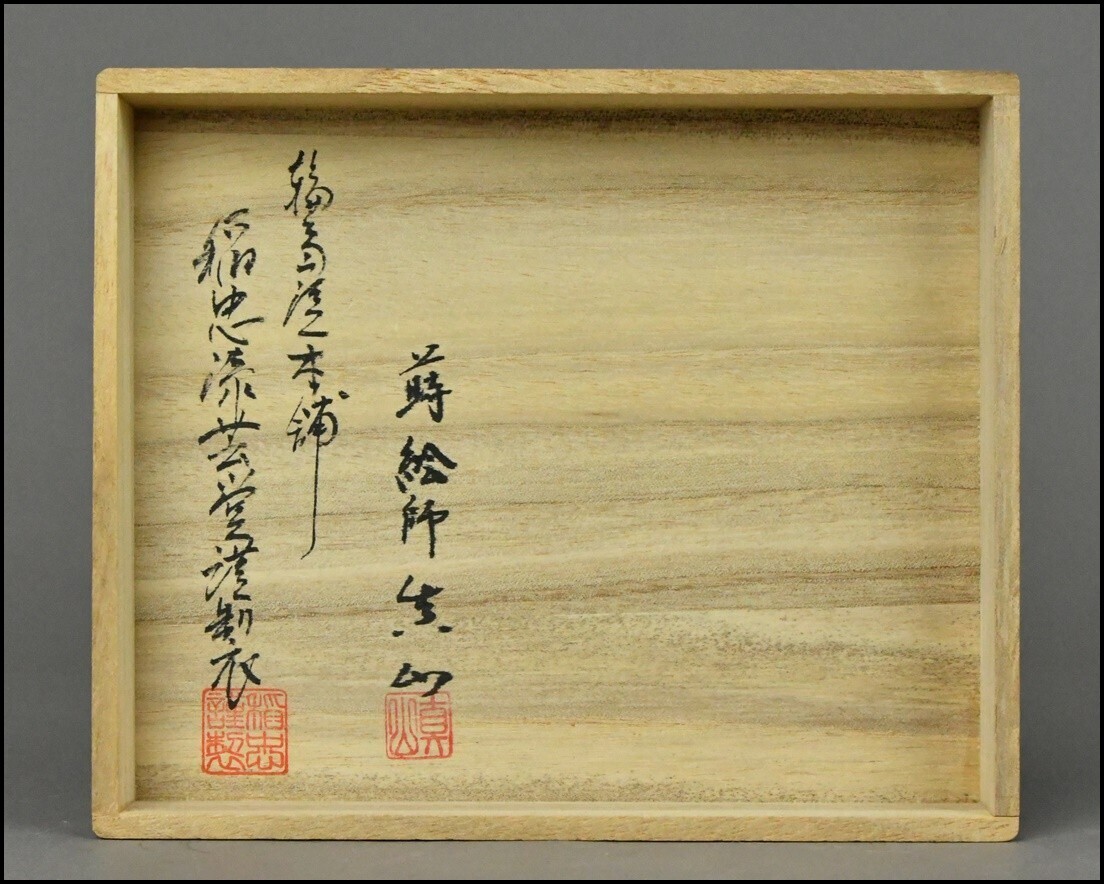 蒔絵師真山
真山
輪島塗本舗
稲忠漆芸堂謹製
稲忠謹製